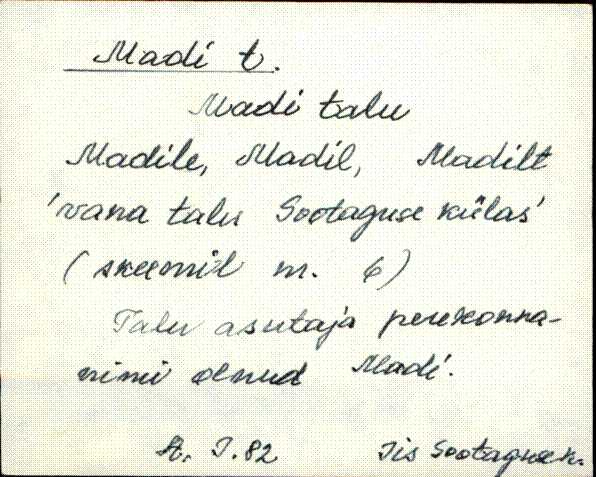 Madi t.
Madi talu
Madile, Madil, Madilt
'vana talu Sootaguse külas'
(skeemil nr. 6)
Talu asutaja perekonna-
nimi olnud Madi.
A. J. 82 Iis Sootaguse k.